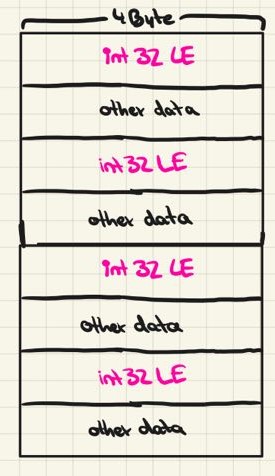 4 Byte
int 32 LE
other data
int 32 LE
other data
int 32 LE
other data
int 32 LE
other data